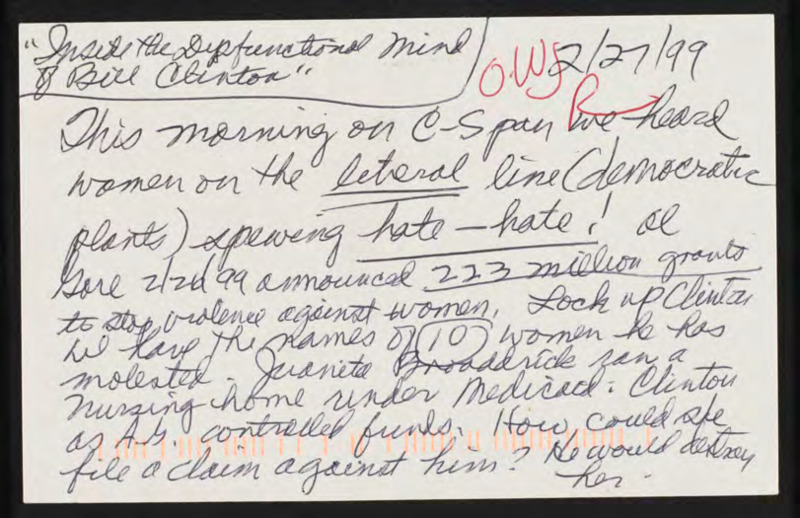 "Inside the Dysfunctional Mind
of Bill Clinton"
OWJ 2/27/99
R
This morning on C-Span we heard
women on the liberal line (democratic
plants) spewing hate - hate! Al
Gore 2/26/99 announced 223 million grants
to stop violence against women. Lock up Clinton
we have the names of 10 women he has
molested. Juanita Broaddrick ran a
nursing home under Medicaid. Clinton
as A.G. controlled funds. How could she
file a claim against him? He would destroy
her.